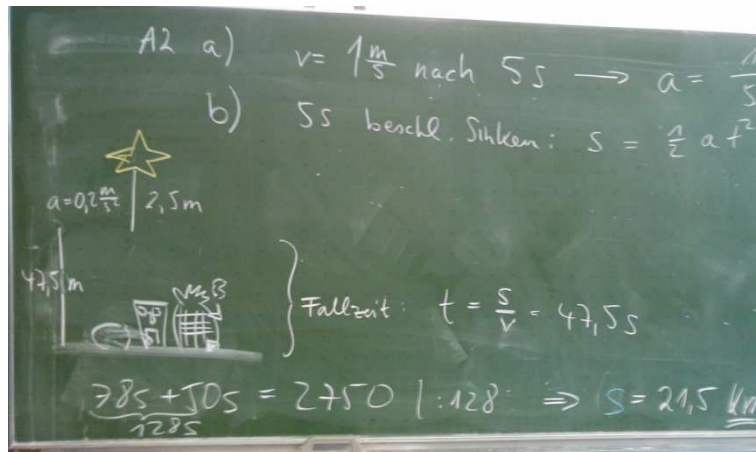 A2 a) v = 1 m/s nach 5s → a = 1/5
b) 5s beschl. Sinken: s = 1/2 a t²
a=0,2 m/s² 2,5m
47,5m
Fallzeit: t = s/v = 47,5s
78s + 50s = 2750 | :128 ⇒ s = 21,5 km
128s